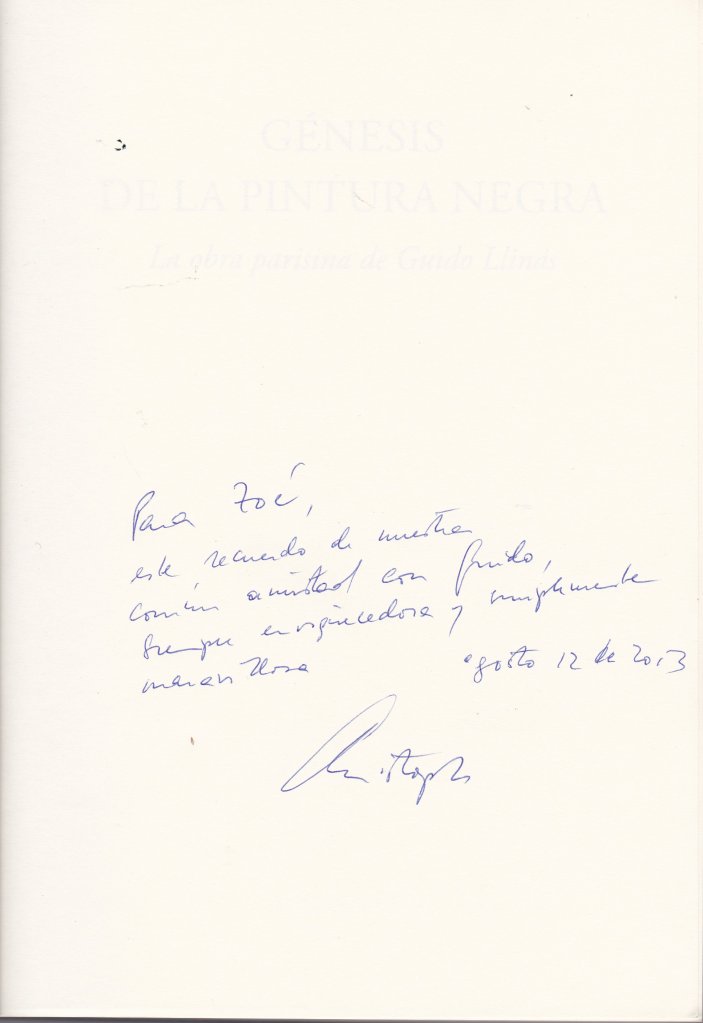 GÉNESIS
DE LA PINTURA NEGRA
La obra parisina de Guido Llinás
Para Zoé,
este recuerdo de nuestra
común amistad con Guido,
siempre enriquecedora y simplemente
maravillosa
agosto 12 de 2013
Christoph